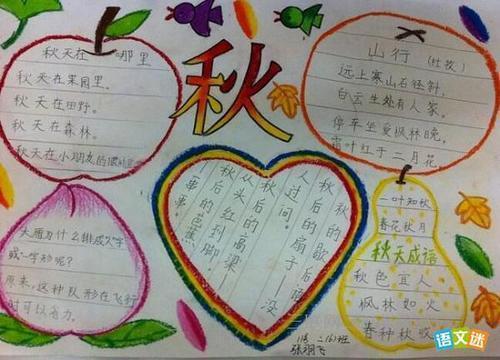 秋天在 哪里
秋天在果园里。
秋天在田野。
秋天在森林。
秋天在小朋友的
秋
山行 (杜牧)
远上寒山石径斜,
白云生处有人家。
停车坐爱枫林晚,
霜叶红于二月花。
大雁为什么排成"人"字
或"一"字形呢?
原来,这种队形在飞行
时可以省力。
秋的歇后语
秋后的扇子——没
人过问。
秋后的高粱——
从头红到脚。
秋后的芭蕉
一串串。
一叶知秋
春花秋月
秋天成语
秋色宜人
枫林如火
春种秋收
二(6)班
张翔飞
语文迷